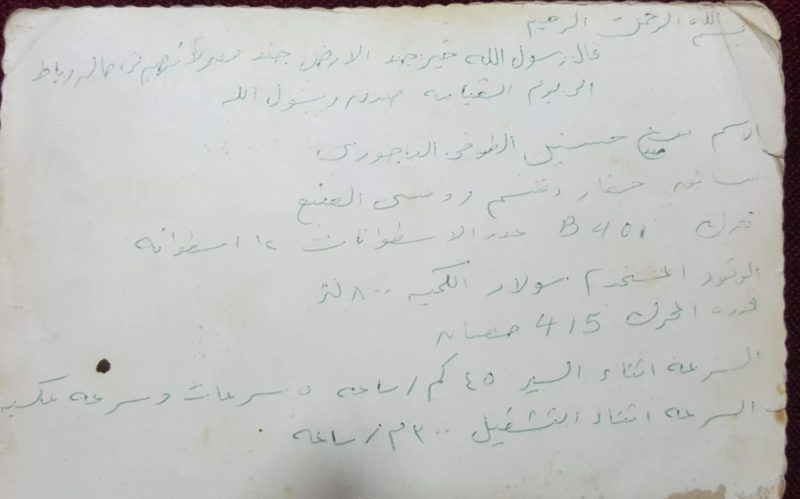 بسم الله الرحمن الرحيم
قال رسول الله خير جند الارض جند مصر لأنهم في حاله رباط
الى يوم القيامه صدق رسول الله
الاسم حسنين الطوخى الباجورى
سائق حفار روسى الصنع
محرك B 401 عدد الاسطوانات ١٢ اسطوانه
الوقود المستخدم سولار الكميه ٨٠٠ لتر
قدره المحرك 415 حصان
السرعه اثناء السير ٤٥ كم / ساعه ٥ سرعات وسرعه عكسيه
السرعه اثناء التشغيل ٣٠٠ م / ساعه